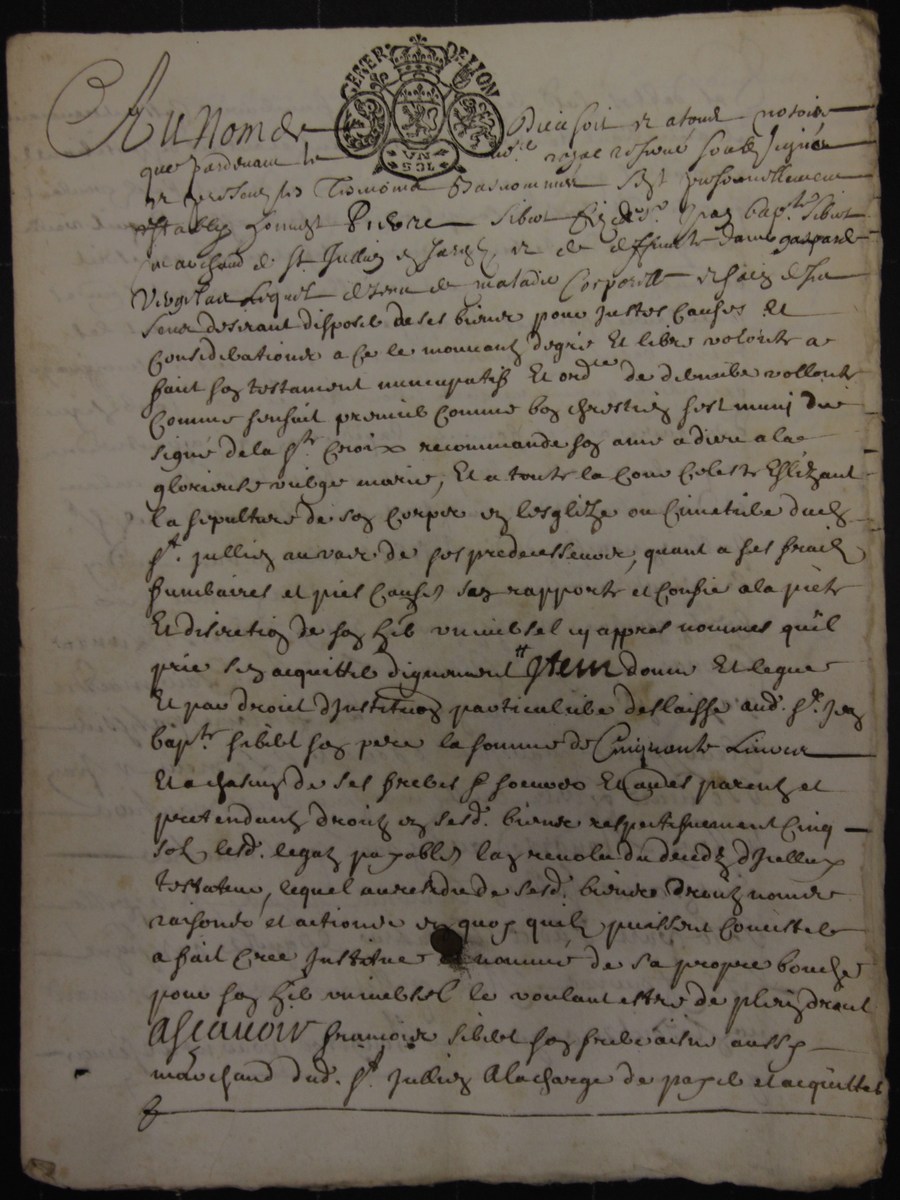 GENER DE LION
VN SOL
Au Nom de Dieu soit et a tous notoire
que pardevant le no.re royal reservé soubsigné
et presens les tesmoins bas nommés s'est personnellement
estably honnest Pierre Sibert fils de s.r Jean bap.te Sibert
marchand de St. Jullien en Jarestz, et de deffuncte dame gaspard
lequel detenu de maladie corporelle et sain de ses
sens desirant disposer de ses biens pour justes causes et
considerations a ce le mouvant degré et libre volonté a
fait son testament nuncupatif et ord.ce de derniere vollonté
comme sensuit premier comme bon chrestien sest muni du
signe de la s.te croix recommande son ame a dieu a la
glorieuse vierge marie, et a toute la cour celeste eslizant
la sepulture de son corps en lesglize ou cimetiere dud.
s.t jullien au vase de ses predecesseurs, quant a ses fraix
funeraires et pies causes sen rapporte et confie a la pieté
et discretion de son her. universel cy appres nommés quil
prie sen acquitter dignement Item donne et legue
et par droit d'institution particuliere deslaisse aud. s.r Jean
bap.te sibert son pere la somme de Cinquante Livres
et a chascung de ses freres et soeurs et autres parents et
pretendants droits en sesd. biens respectifvement cinq
sols lesd. legats payables lan revolu du deceds d'icelluy
testateur, lequel au residu de sesd. biens droits noms
raisons et actions en quoy quils puissent consister
a fait cree institue et nommé de sa propre bouche
pour son her. universel le voulant estre de plein droit
Ascavoir françois sibert son frere aisné aussy
marchand dud. s.t jullien a la charge de payer et acquitter